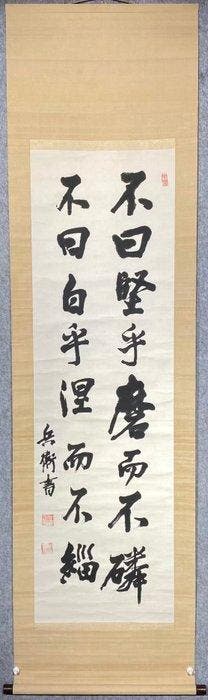 不曰堅乎磨而不磷
不曰白乎涅而不緇
兵衛書